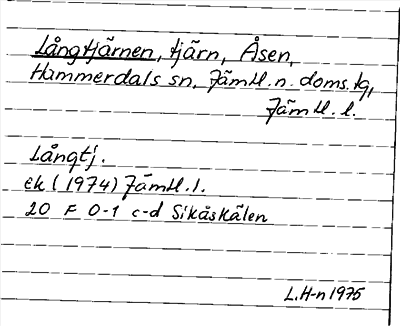 Långtjärnen, tjärn, Åsen,
Hammerdals sn, Jämtl. n. doms. tg,
Jämtl. l.
Långtj.
ek (1974) Jämtl. l.
20 F 0-1 c-d Sikåskälen
L. H-n 1975